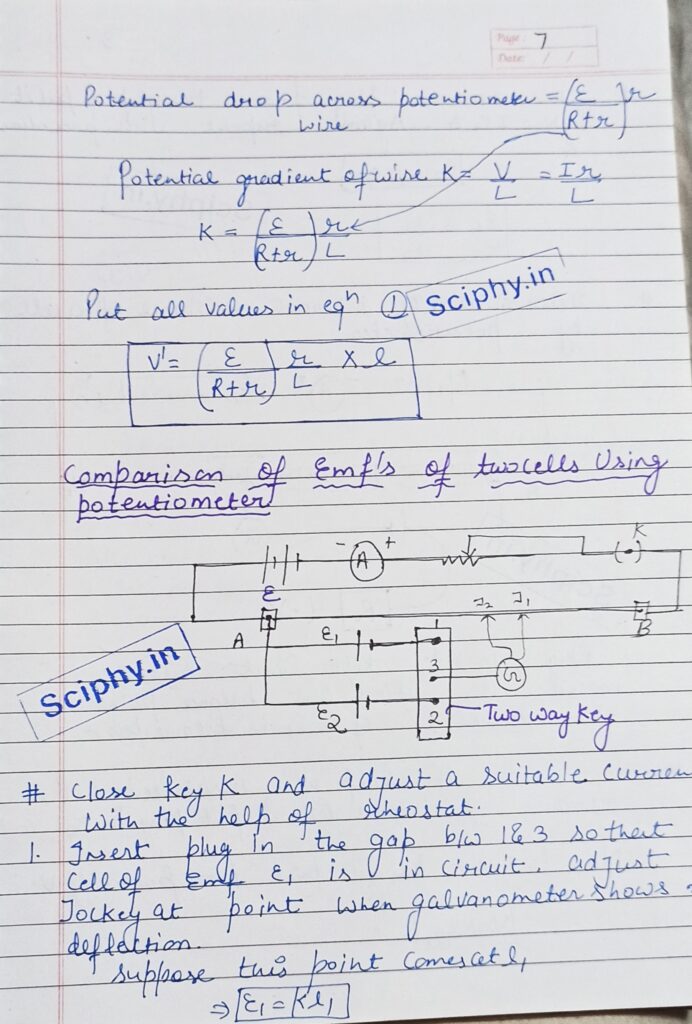 Page: 7
Date: / /
Potential drop across potentiometer = (ε/R+r) r
wire
Potential gradient of wire K = V/L = Ir/L
K = (ε/R+r) r/L
Put all values in eqn ① Sciphy.in
V' = (ε/R+r) r/L × l
Comparison of Emf's of two cells Using
potentiometer
- A +
K
ε
J2 J1
A
B
ε1
1
3
G
Sciphy.in
ε2
2
Two way key
# Close key K and adjust a suitable curren
With the help of rheostat.
1. Insert plug in the gap b/w 1&3 so that
Cell of Emf ε1 is in circuit. adjust
Jockey at point when galvanometer shows
deflection.
Suppose this point comes at l1
⇒ ε1 = Kl1